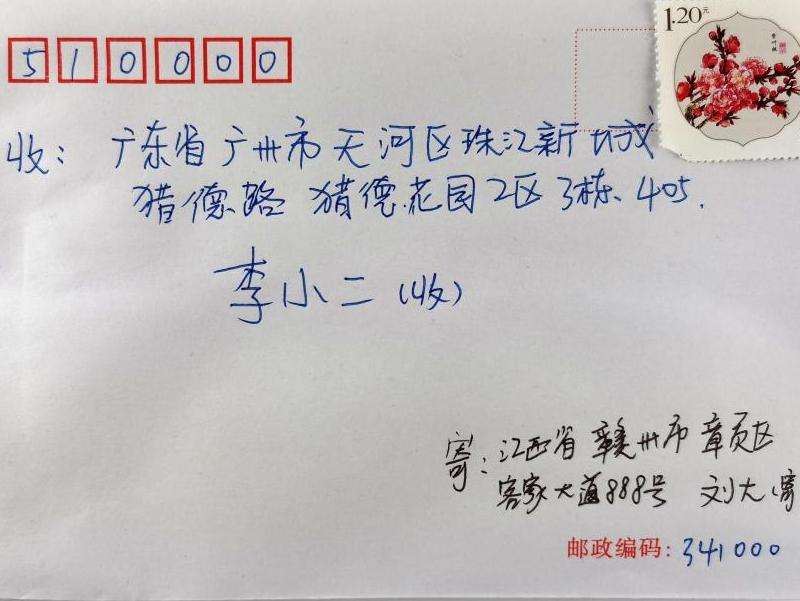 1.20元
510000
收：广东省广州市天河区珠江新城
猎德路 猎德花园2区3栋、405.
李小二（收）
寄：江西省赣州市章贡区
客家大道888号 刘大（寄
邮政编码：341000